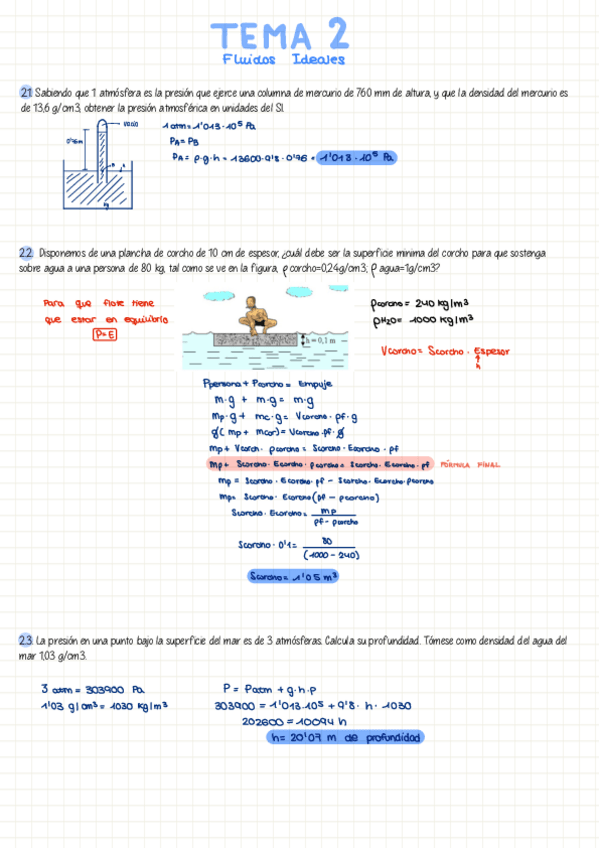 TEMA 2
Fluidos Ideales
2.1 Sabiendo que 1 atmósfera es la presión que ejerce una columna de mercurio de 760 mm de altura, y que la densidad del mercurio es
de 13,6 g/cm3, obtener la presión atmosférica en unidades del SI.
vacío
0'76m
A
B
Hg
1 atm = 1'013·10⁵ Pa
PA = PB
PA = ρ·g·h = 13600·9'8·0'76 = 1'013·10⁵ Pa
2.2. Disponemos de una plancha de corcho de 10 cm de espesor, ¿cuál debe ser la superficie mínima del corcho para que sostenga
sobre agua a una persona de 80 kg, tal como se ve en la figura, ρ corcho=0,24g/cm3; ρ agua=1g/cm3?
Para que flote tiene
que estar en equilibrio
P=E
h = 0,1 m
ρcorcho = 240 kg/m³
ρH2O = 1000 kg/m³
Vcorcho = Scorcho · Espesor
h
Ppersona + Pcorcho = Empuje
m·g + m·g = m·g
mp·g + mc·g = Vcorcho·ρf·g
g(mp + mcor) = Vcorcho·ρf·g
mp + Vcorch·ρcorcho = Scorcho·Ecorcho·ρf
mp + Scorcho·Ecorcho·ρcorcho = Scorcho·Ecorcho·ρf FÓRMULA FINAL
mp = Scorcho·Ecorcho·ρf - Scorcho·Ecorcho·ρcorcho
mp = Scorcho·Ecorcho(ρf - ρcorcho)
Scorcho·Ecorcho = mp / ρf - ρcorcho
Scorcho·0'1 = 80 / (1000 - 240)
Scorcho = 1'05 m²
2.3. La presión en una punto bajo la superficie del mar es de 3 atmósferas. Calcula su profundidad. Tómese como densidad del agua del
mar 1,03 g/cm3.
3 atm = 303900 Pa
1'03 g/cm³ = 1030 kg/m³
P = Patm + g·h·ρ
303900 = 1'013·10⁵ + 9'8·h·1030
202600 = 10094 h
h = 20'07 m de profundidad